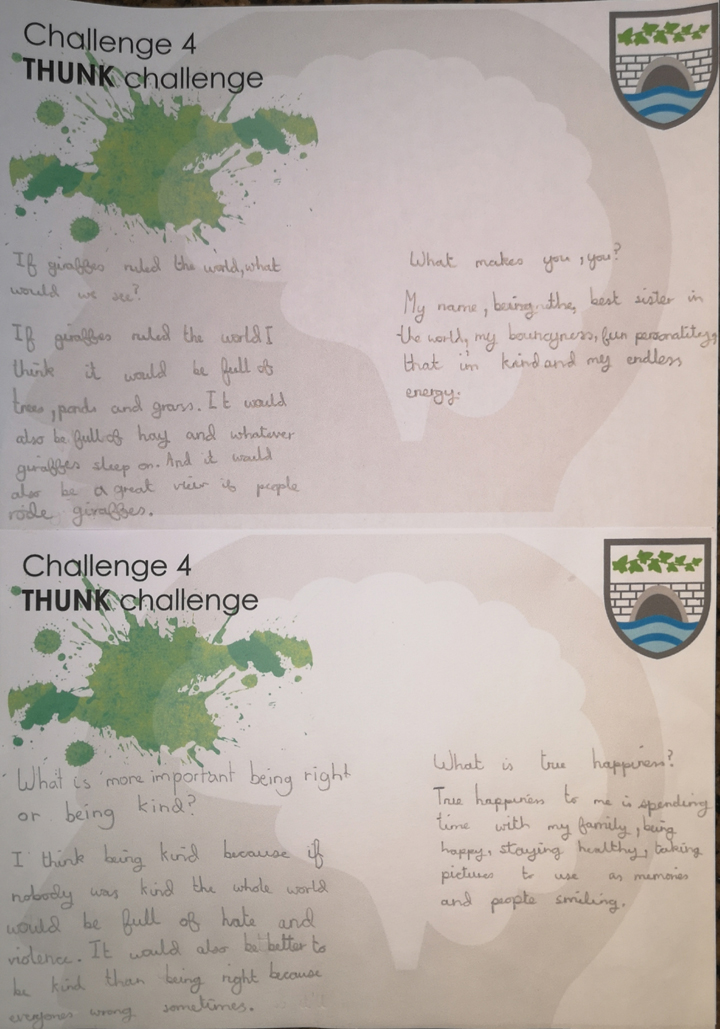 Challenge 4
THUNK challenge
If giraffes ruled the world, what
would we see?
If giraffes ruled the world I
think it would be full of
trees, ponds and grass. It would
also be full of hay and whatever
giraffes sleep on. And it would
also be a great view if people
rode giraffes.
What makes you, you?
My name, being the best sister in
the world, my bouncyness, fun personality,
that im kind and my endless
energy.
Challenge 4
THUNK challenge
What is more important being right
or being kind?
I think being kind because if
nobody was kind the whole world
would be full of hate and
violence. It would also be better to
be kind than being right because
everyones wrong sometimes.
What is true happiness?
True happiness to me is spending
time with my family, being
happy, staying healthy, taking
pictures to use as memories
and people smiling.